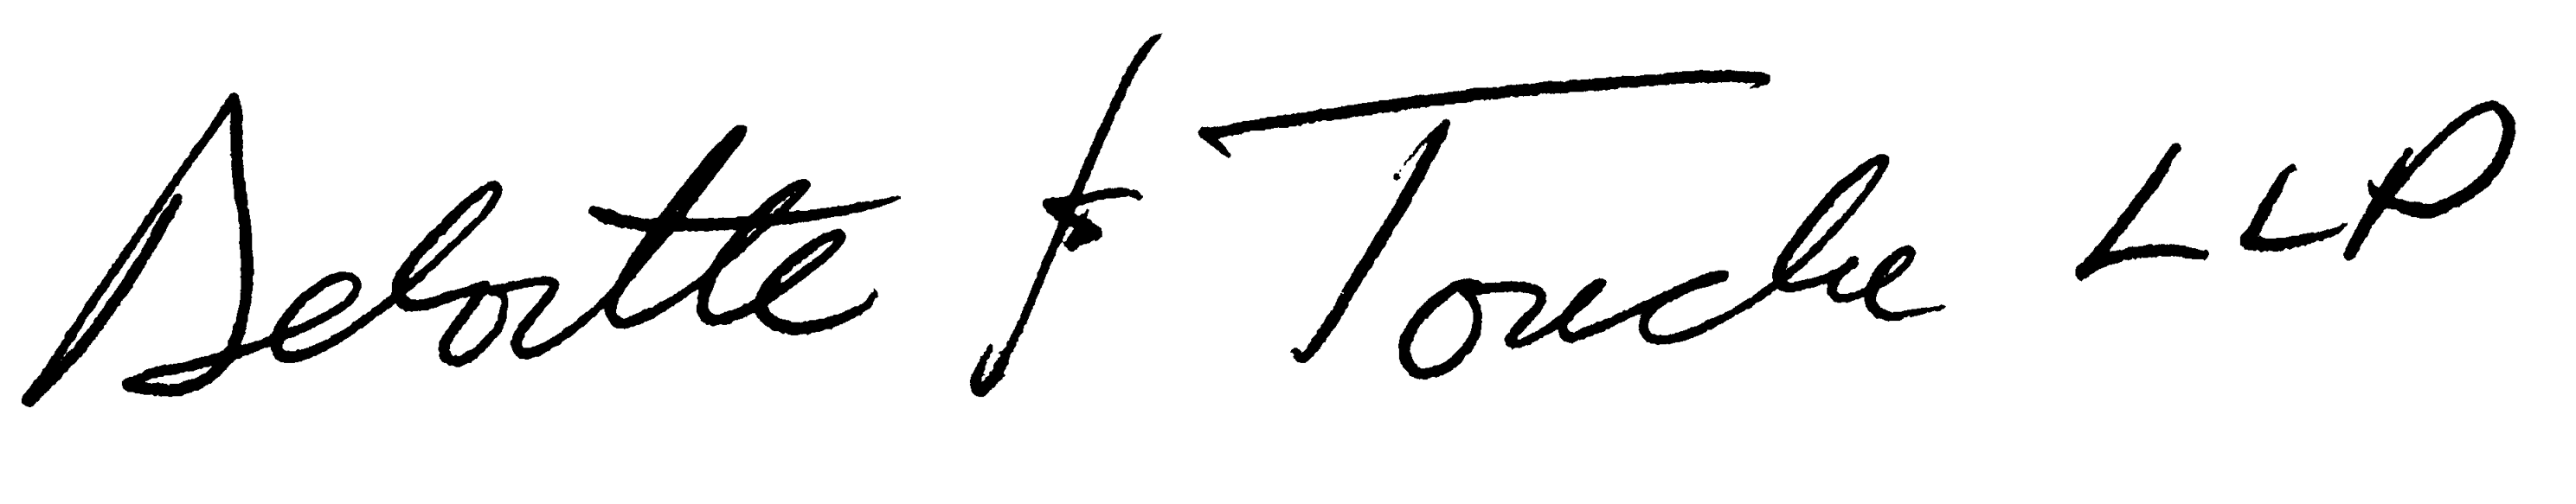 Deloitte & Touche LLP